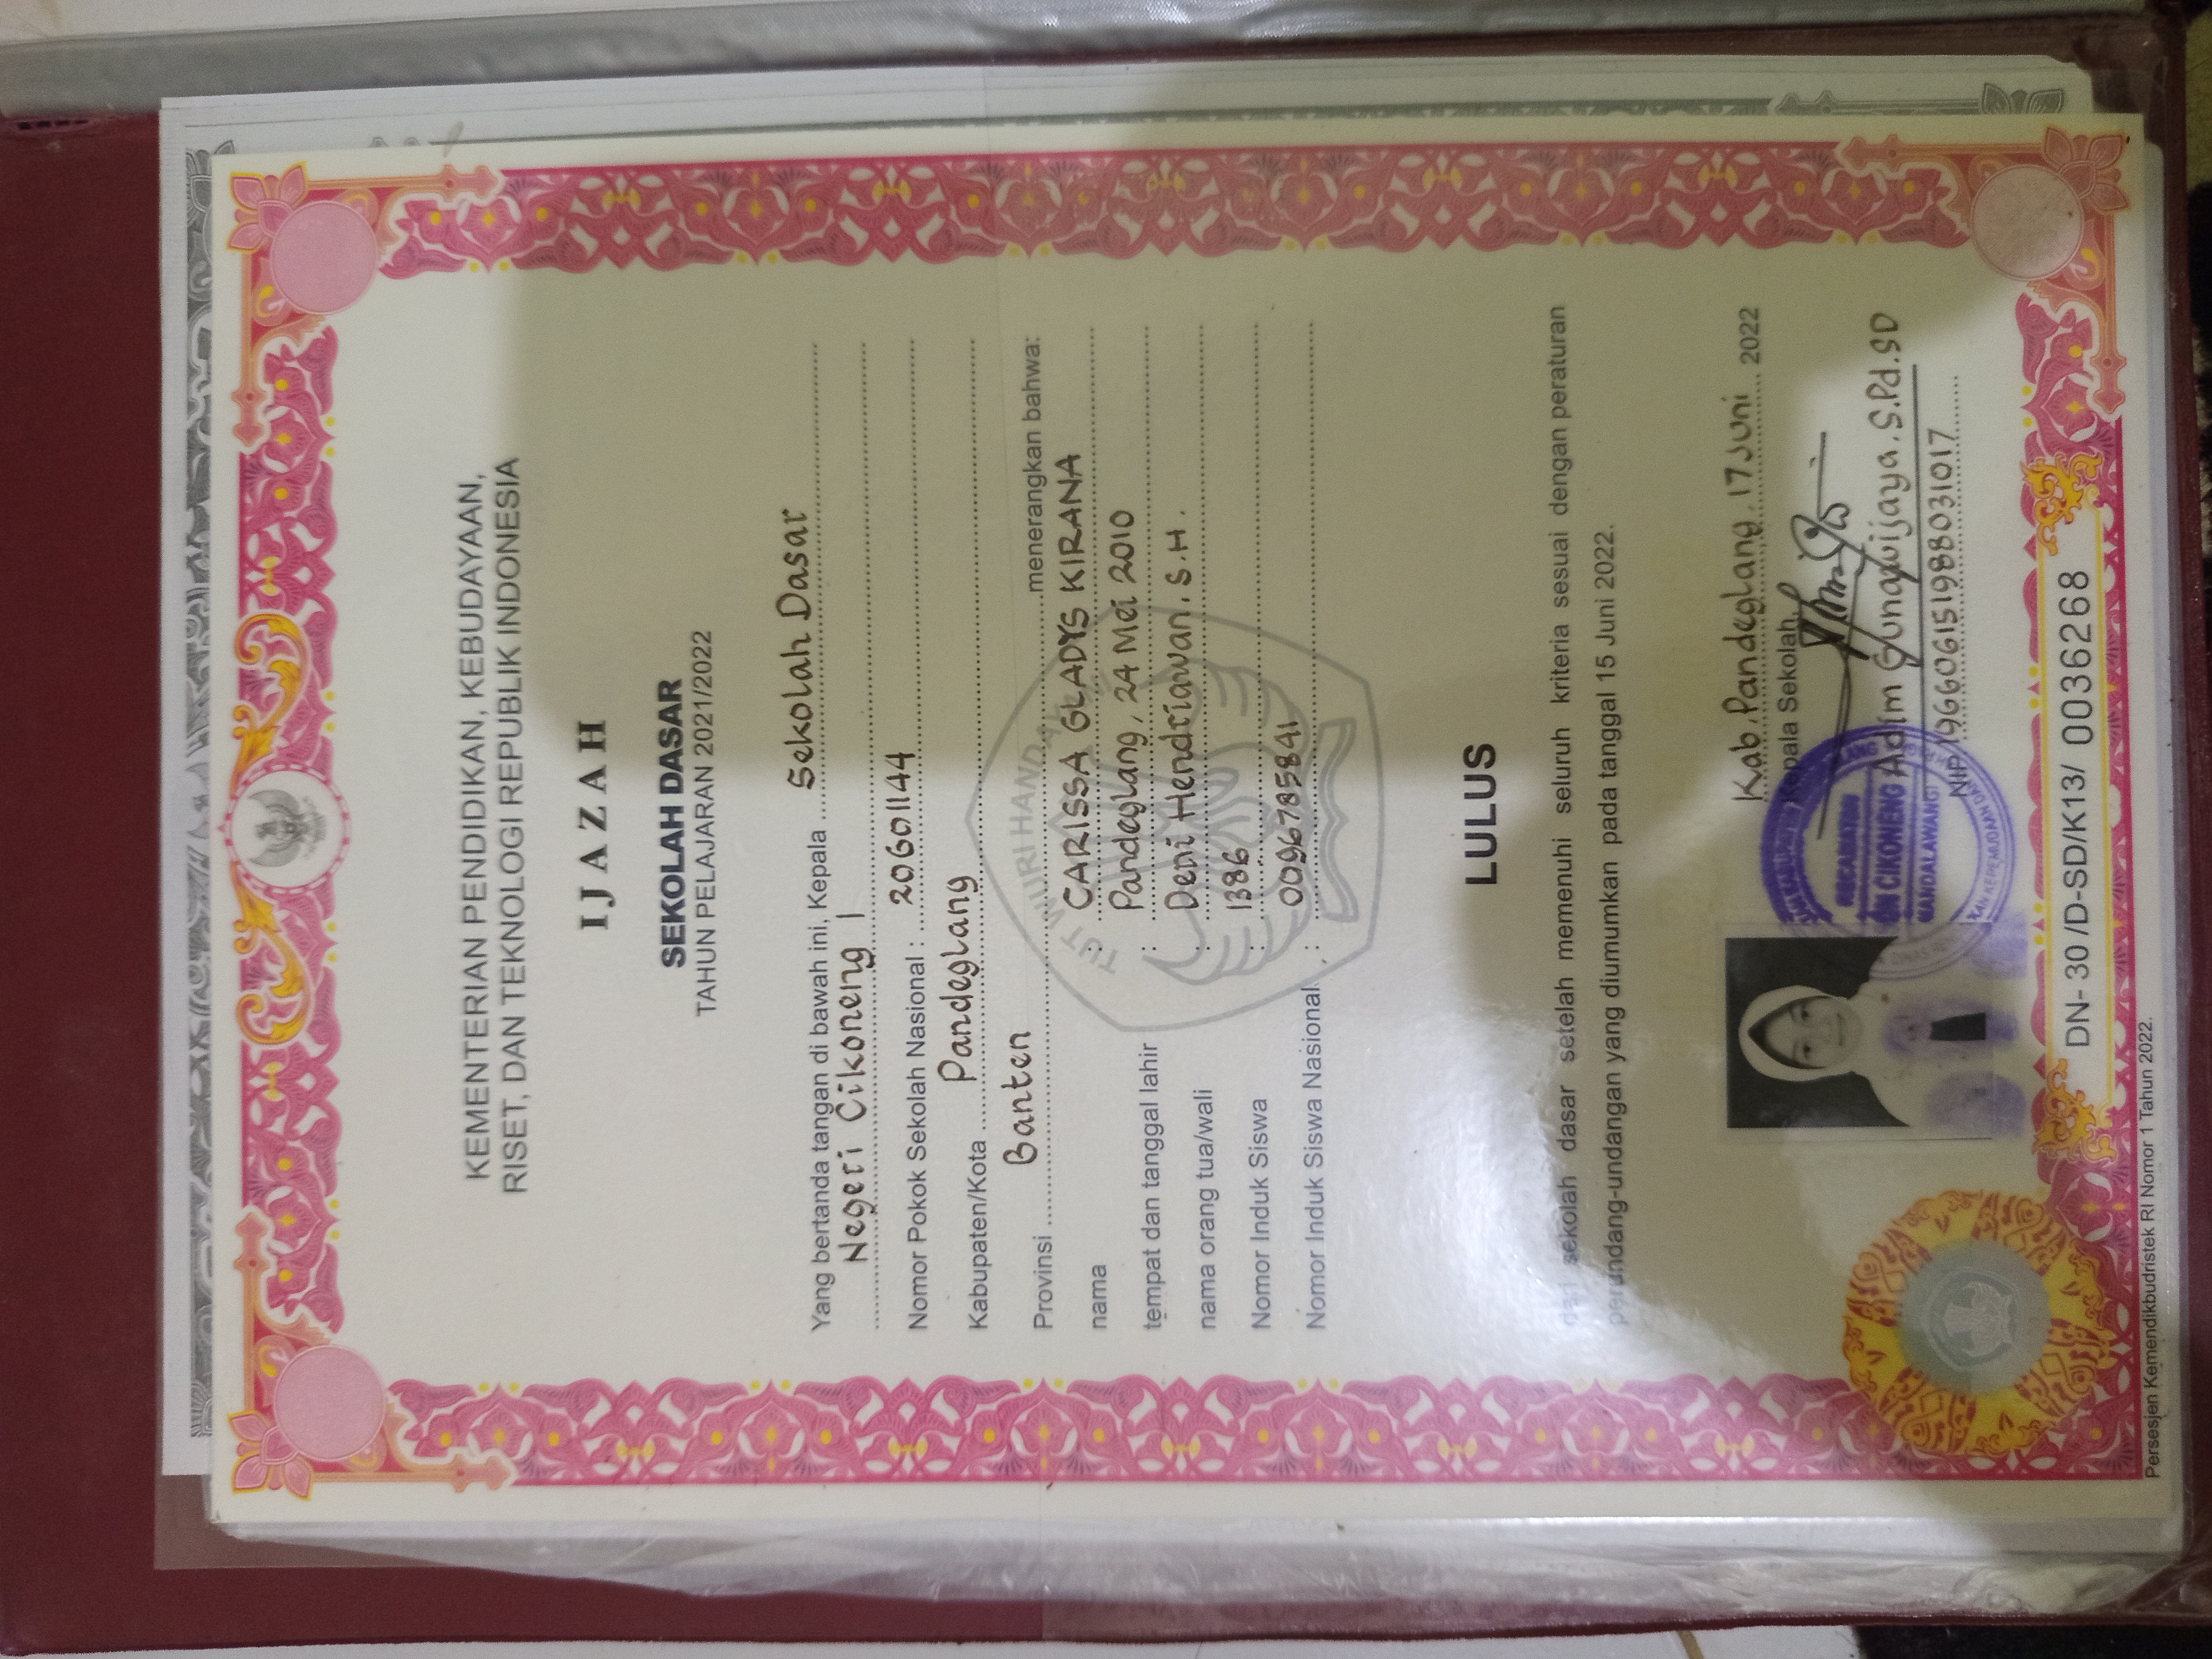 KEMENTERIAN PENDIDIKAN, KEBUDAYAAN,
RISET, DAN TEKNOLOGI REPUBLIK INDONESIA
IJAZAH
SEKOLAH DASAR
TAHUN PELAJARAN 2021/2022
Yang bertanda tangan di bawah ini, Kepala Sekolah Dasar
Negeri Cikoneng 1
Nomor Pokok Sekolah Nasional : 20601144
Kabupaten/Kota Pandeglang
Provinsi Banten menerangkan bahwa:
TUT WURI HANDAYANI
nama : CARISSA GLADYS KIRANA
tempat dan tanggal lahir : Pandeglang, 24 Mei 2010
nama orang tua/wali : Deni Hendriawan. S.H.
Nomor Induk Siswa : 1386
Nomor Induk Siswa Nasional : 0096785841
LULUS
dari sekolah dasar setelah memenuhi seluruh kriteria sesuai dengan peraturan
perundang-undangan yang diumumkan pada tanggal 15 Juni 2022.
Kab. Pandeglang, 17 Juni 2022
Kepala Sekolah,
KECAMATAN
CIKONENG
MANDALAWANGI
Adim Gunawijaya. S.Pd.SD
NIP 196606151988031017
DN- 30 /D-SD/K13/ 0036268
Persesjen Kemendikbudristek RI Nomor 1 Tahun 2022.